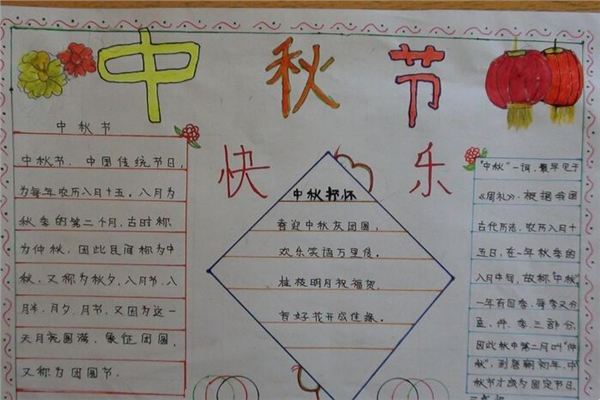 中秋节
快乐
中秋节
中秋节、中国传统节日,
为每年农历八月十五,八月为
秋季的第二个月,古时称
为仲秋,因此民间称为中
秋,又称为秋夕,八月节、八
月半,月夕,月节,又因为这一
天月亮圆满,象征团圆,
又称为团圆节。
中秋抒怀
喜迎中秋友团圆,
欢乐笑语万里传。
桂枝明月祝福贺,
好花开成佳缘。
"中秋"一词,最早见于
《周礼》。根据我国
古代历法,农历八月十
五日,在一年秋季的
八月中旬,故称"中秋"。
一年有四季,每季又分
孟、仲、季三部分,
因此秋中第二月叫"仲
秋",到唐朝初年,中
秋节才成为固定节日。